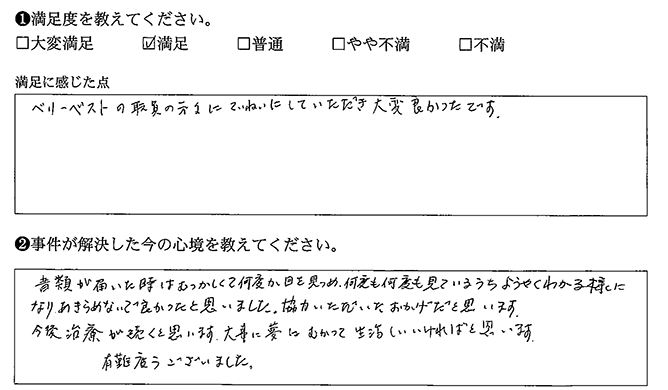 ❶満足度を教えてください。
□大変満足 ☑満足 □普通 □やや不満 □不満
満足に感じた点
ベリーベストの取員の方々にていねいにしていただき大変良かったです。
❷事件が解決した今の心境を教えてください。
書類が届いた時はむつかしくて何度か目を見つめ、何度も何度も見ているうちようやくわかる様に
なりあきらめないで良かったと思いました。協力いただいたおかげだと思います。
今後治療が続くと思います。大事に夢にむかって生活していければと思います。
有難度うございました。